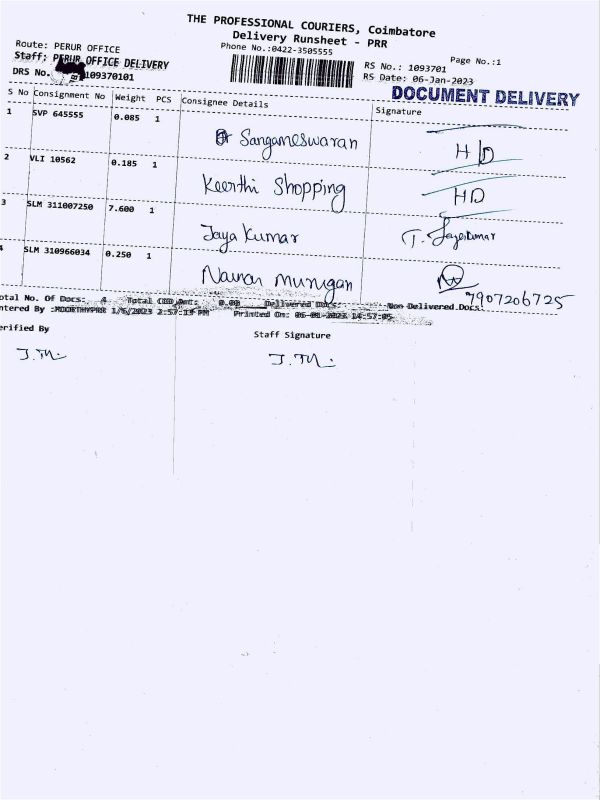 THE PROFESSIONAL COURIERS, Coimbatore
Delivery Runsheet - PRR
Route: PERUR OFFICE
Phone No.:0422-3505555
Page No.:1
Staff: PERUR OFFICE DELIVERY
RS No.: 1093701
DRS No. 109370101
RS Date: 06-Jan-2023
DOCUMENT DELIVERY
S No Consignment No Weight PCS Consignee Details Signature
1 SVP 645555 0.085 1
Sangameswaran HD
2 VLI 10562 0.185 1
Keerthi Shopping HD
3 SLM 311007250 7.600 1
Jaya Kumar T. Jayakumar
4 SLM 310966034 0.250 1
murugan
7907206725
otal No. Of Docs: 4 Total COD Amt: 0.00 Delivered Docs: Non Delivered Docs:
ntered By :MOORTHYPRR 1/6/2023 2:57:13 PM Printed On: 06-01-2023 14:57:05
erified By
Staff Signature